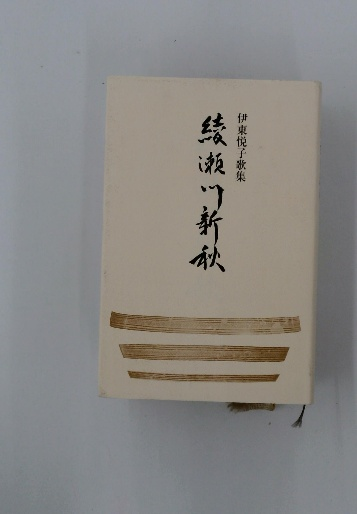 伊東悦子歌集
綾瀬川新秋